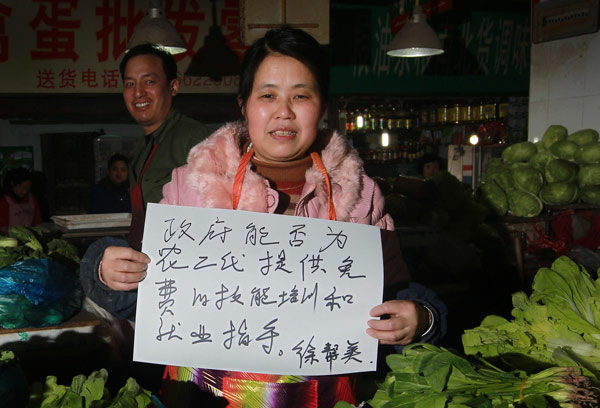 禽蛋批发
送货电话
调味
政府能否为
农二代提供免
费的技能培训和
就业指导。徐帮美.